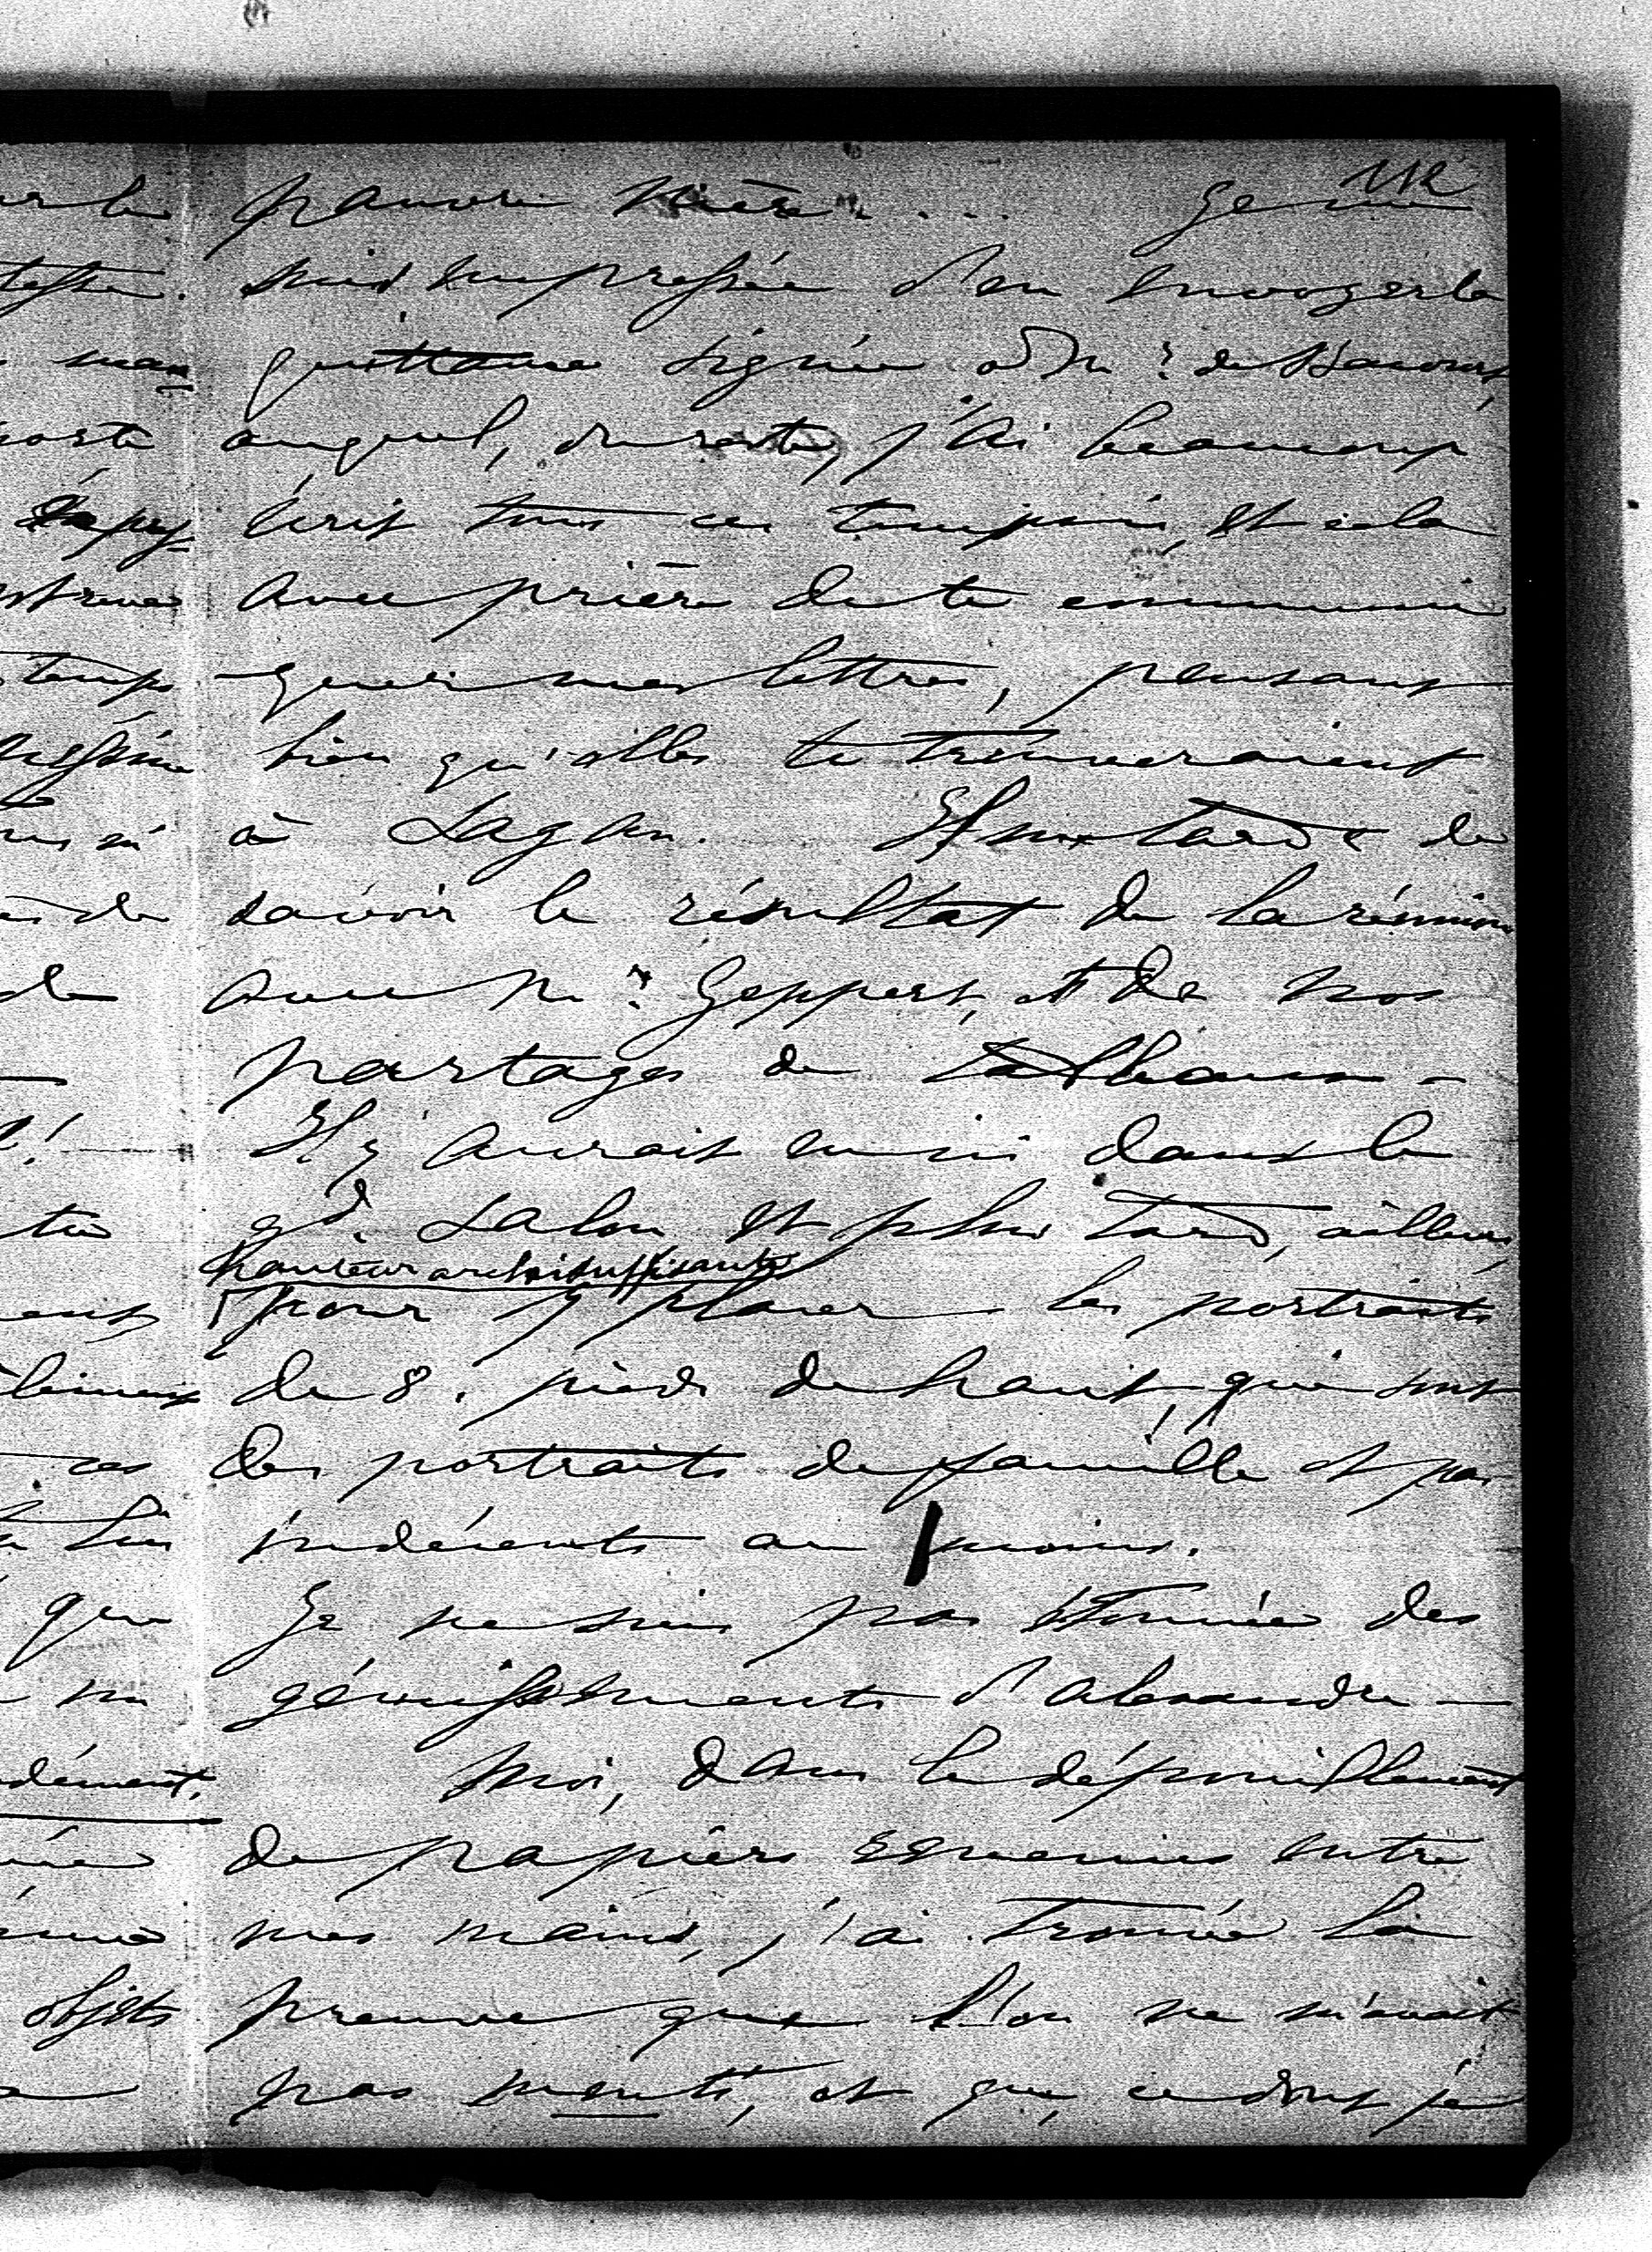 112
pauvre mère.... Je me
suis empressée d'en envoyer la
quittance signée à Mr de Bacourt,
auquel, du reste, j'ai beaucoup
écrit tous ces temps-ci, et cela
avec prière de te communi
-quer mes lettres, pensant
bien qu'elles te trouveraient
à Sagan. Il me tarde de
savoir le résultat de la réunion
avec Mr Geppert, et de nos
partages de
Il y aurait eu ici dans le
gd Salon et plus tard, ailleurs,
hauteur archisuffisante
pour y placer les portraits
de 8. pieds de haut, qui sont
des portraits de famille et pas
indécents au moins.
Je ne suis pas étonnée des
gémissements d'Alexandre —
Moi, dans le dépouillement
de papiers revenus entre
mes mains, j'ai trouvé la
preuve que l'on ne m'avait
pas menti, et que, ce dont je